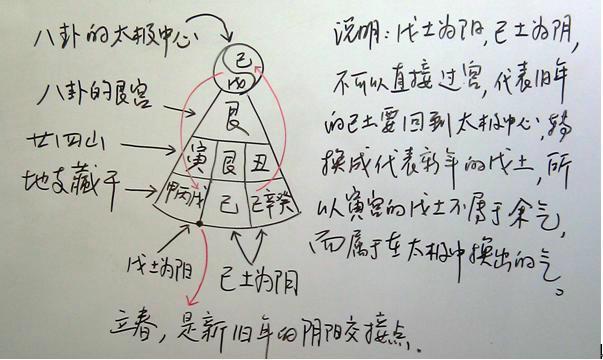 八卦的太极中心
八卦的艮宫
廿四山
地支藏干
己
戊
艮
寅 艮 丑
甲丙戊 己 己辛癸
戊土为阳
己土为阴
立春，是新旧年的阴阳交接点。
说明：戊土为阳，己土为阴，
不可以直接过宫，代表旧年
的己土要回到太极中心，转
换成代表新年的戊土，所
以寅宫的戊土不属于余气，
而属于在太极中换出的气。